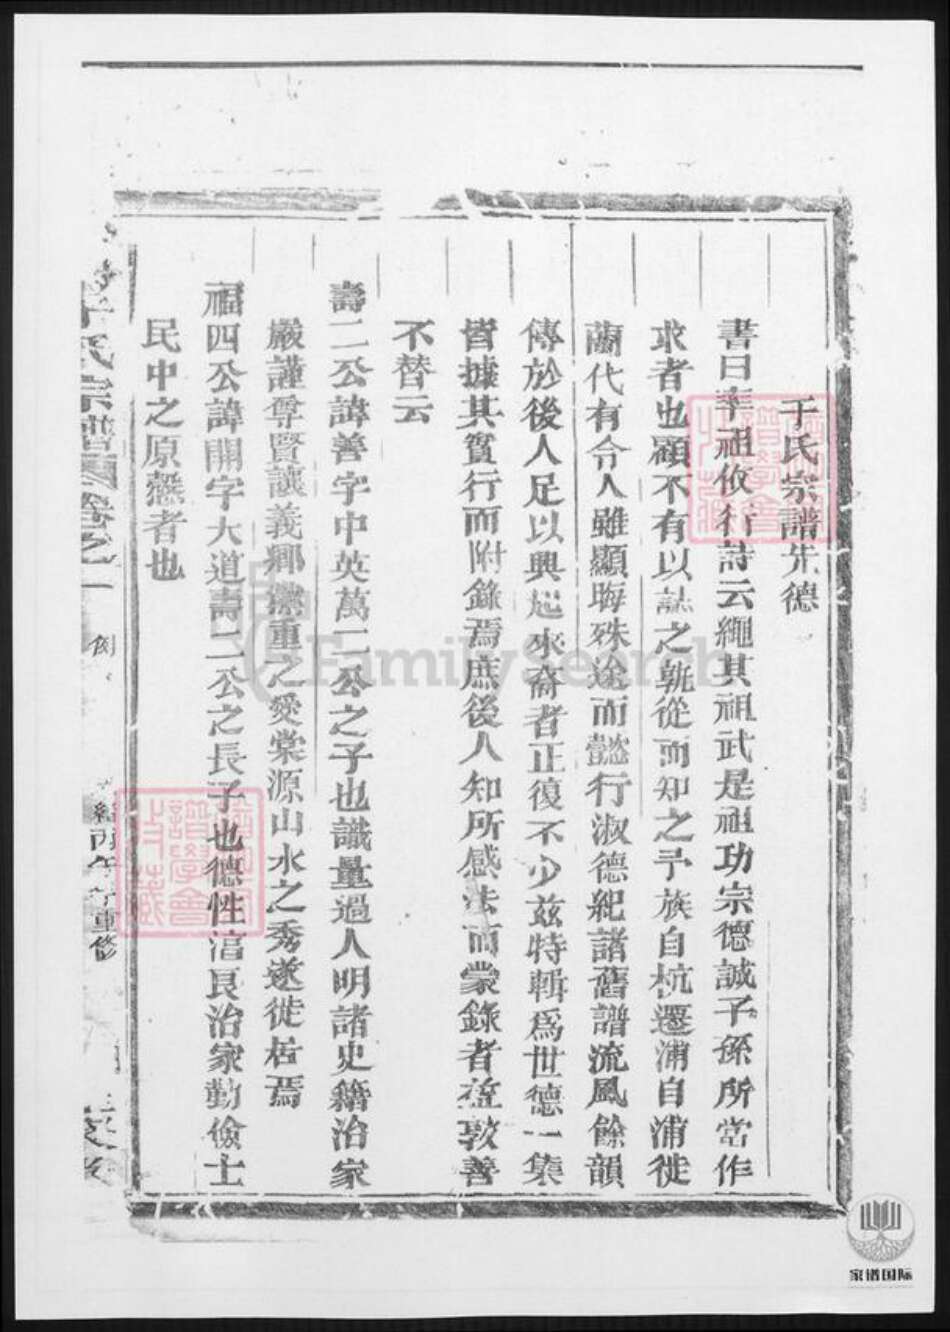 于氏宗譜先德
書曰率祖攸行詩云繩其祖武是祖功宗德誠子孫所當作
求者也顧不有以誌之孰從而知之予族自杭遷浦自浦徙
蘭代有令人雖顯晦殊途而懿行淑德紀諸舊譜流風餘韻
傳於後人足以興起來裔者正復不少茲特輯爲世德一集
皆據其實行而附錄焉庶後人知所感法而蒙錄者益敦善
不替云
壽二公諱善字中英萬二公之子也識量過人明諸史籍治家
嚴謹尊賢讓義鄉黨重之愛棠源山水之秀遂徙居焉
福四公諱開字大道壽二公之長子也德性温良治家勤儉士
民中之原慤者也
于氏宗譜 卷之一
丙午年重修
FamilySearch
家谱国际